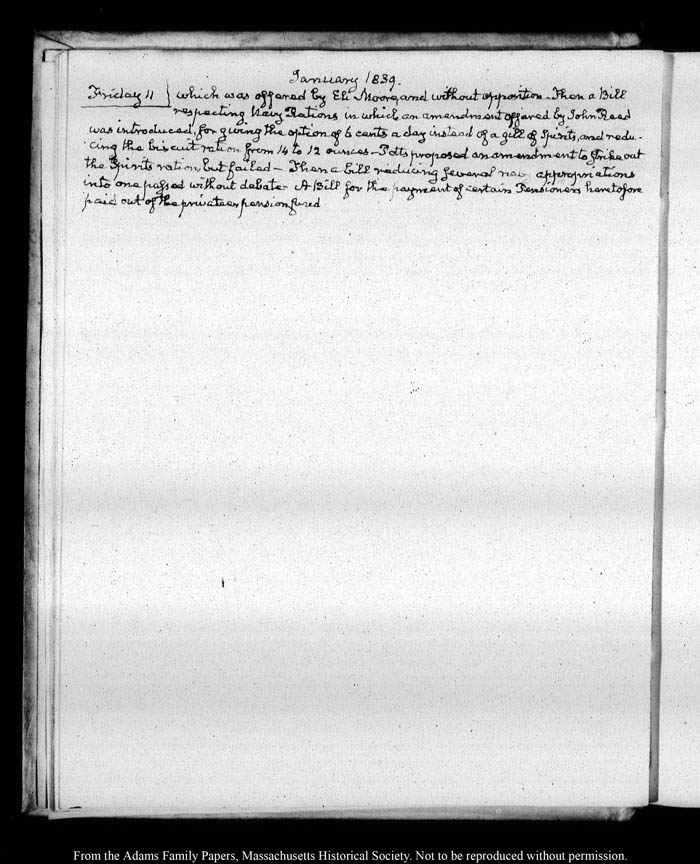 January 1839.
Friday 11 which was offered by Eli Moore, and without opposition. Then a Bill
respecting Navy Rations, in which an amendment offered by John Reed
was introduced, for giving the option of 6 cents a day instead of a gill of Spirits, and redu-
cing the biscuit ration from 14 to 12 ounces. Potts proposed an amendment to strike out
the Spirits ration, but failed – Then a bill reducing several appropriations
into one passed without debate. A Bill for the payment of certain Pensioners heretofore
paid out of the privateer pension fund
From the Adams Family Papers, Massachusetts Historical Society. Not to be reproduced without permission.